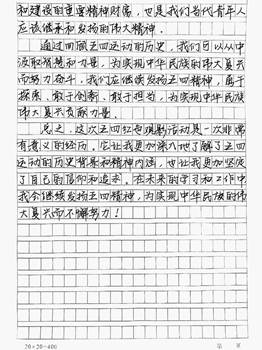 和建设的重要精神财富，也是我们当代青年人
应该继承和发扬的伟大精神。
通过回顾五四运动的历史，我们可以从中
汲取智慧和力量，为实现中华民族的伟大复兴
而努力奋斗。我们应继续发扬五四精神，勇于
探索、敢于创新、敢于担当，为实现中华民族
伟大复兴贡献力量。
总之，这次五四红色观影活动是一次非常
有意义的经历。它让我更加深入地了解了五四
运动的历史背景和精神内涵，也让我更加坚定
了自己的信仰和追求。在未来的学习和工作中
我会继续发扬五四精神，为实现中华民族的伟
大复兴而不懈努力！
20×20=400
第 页